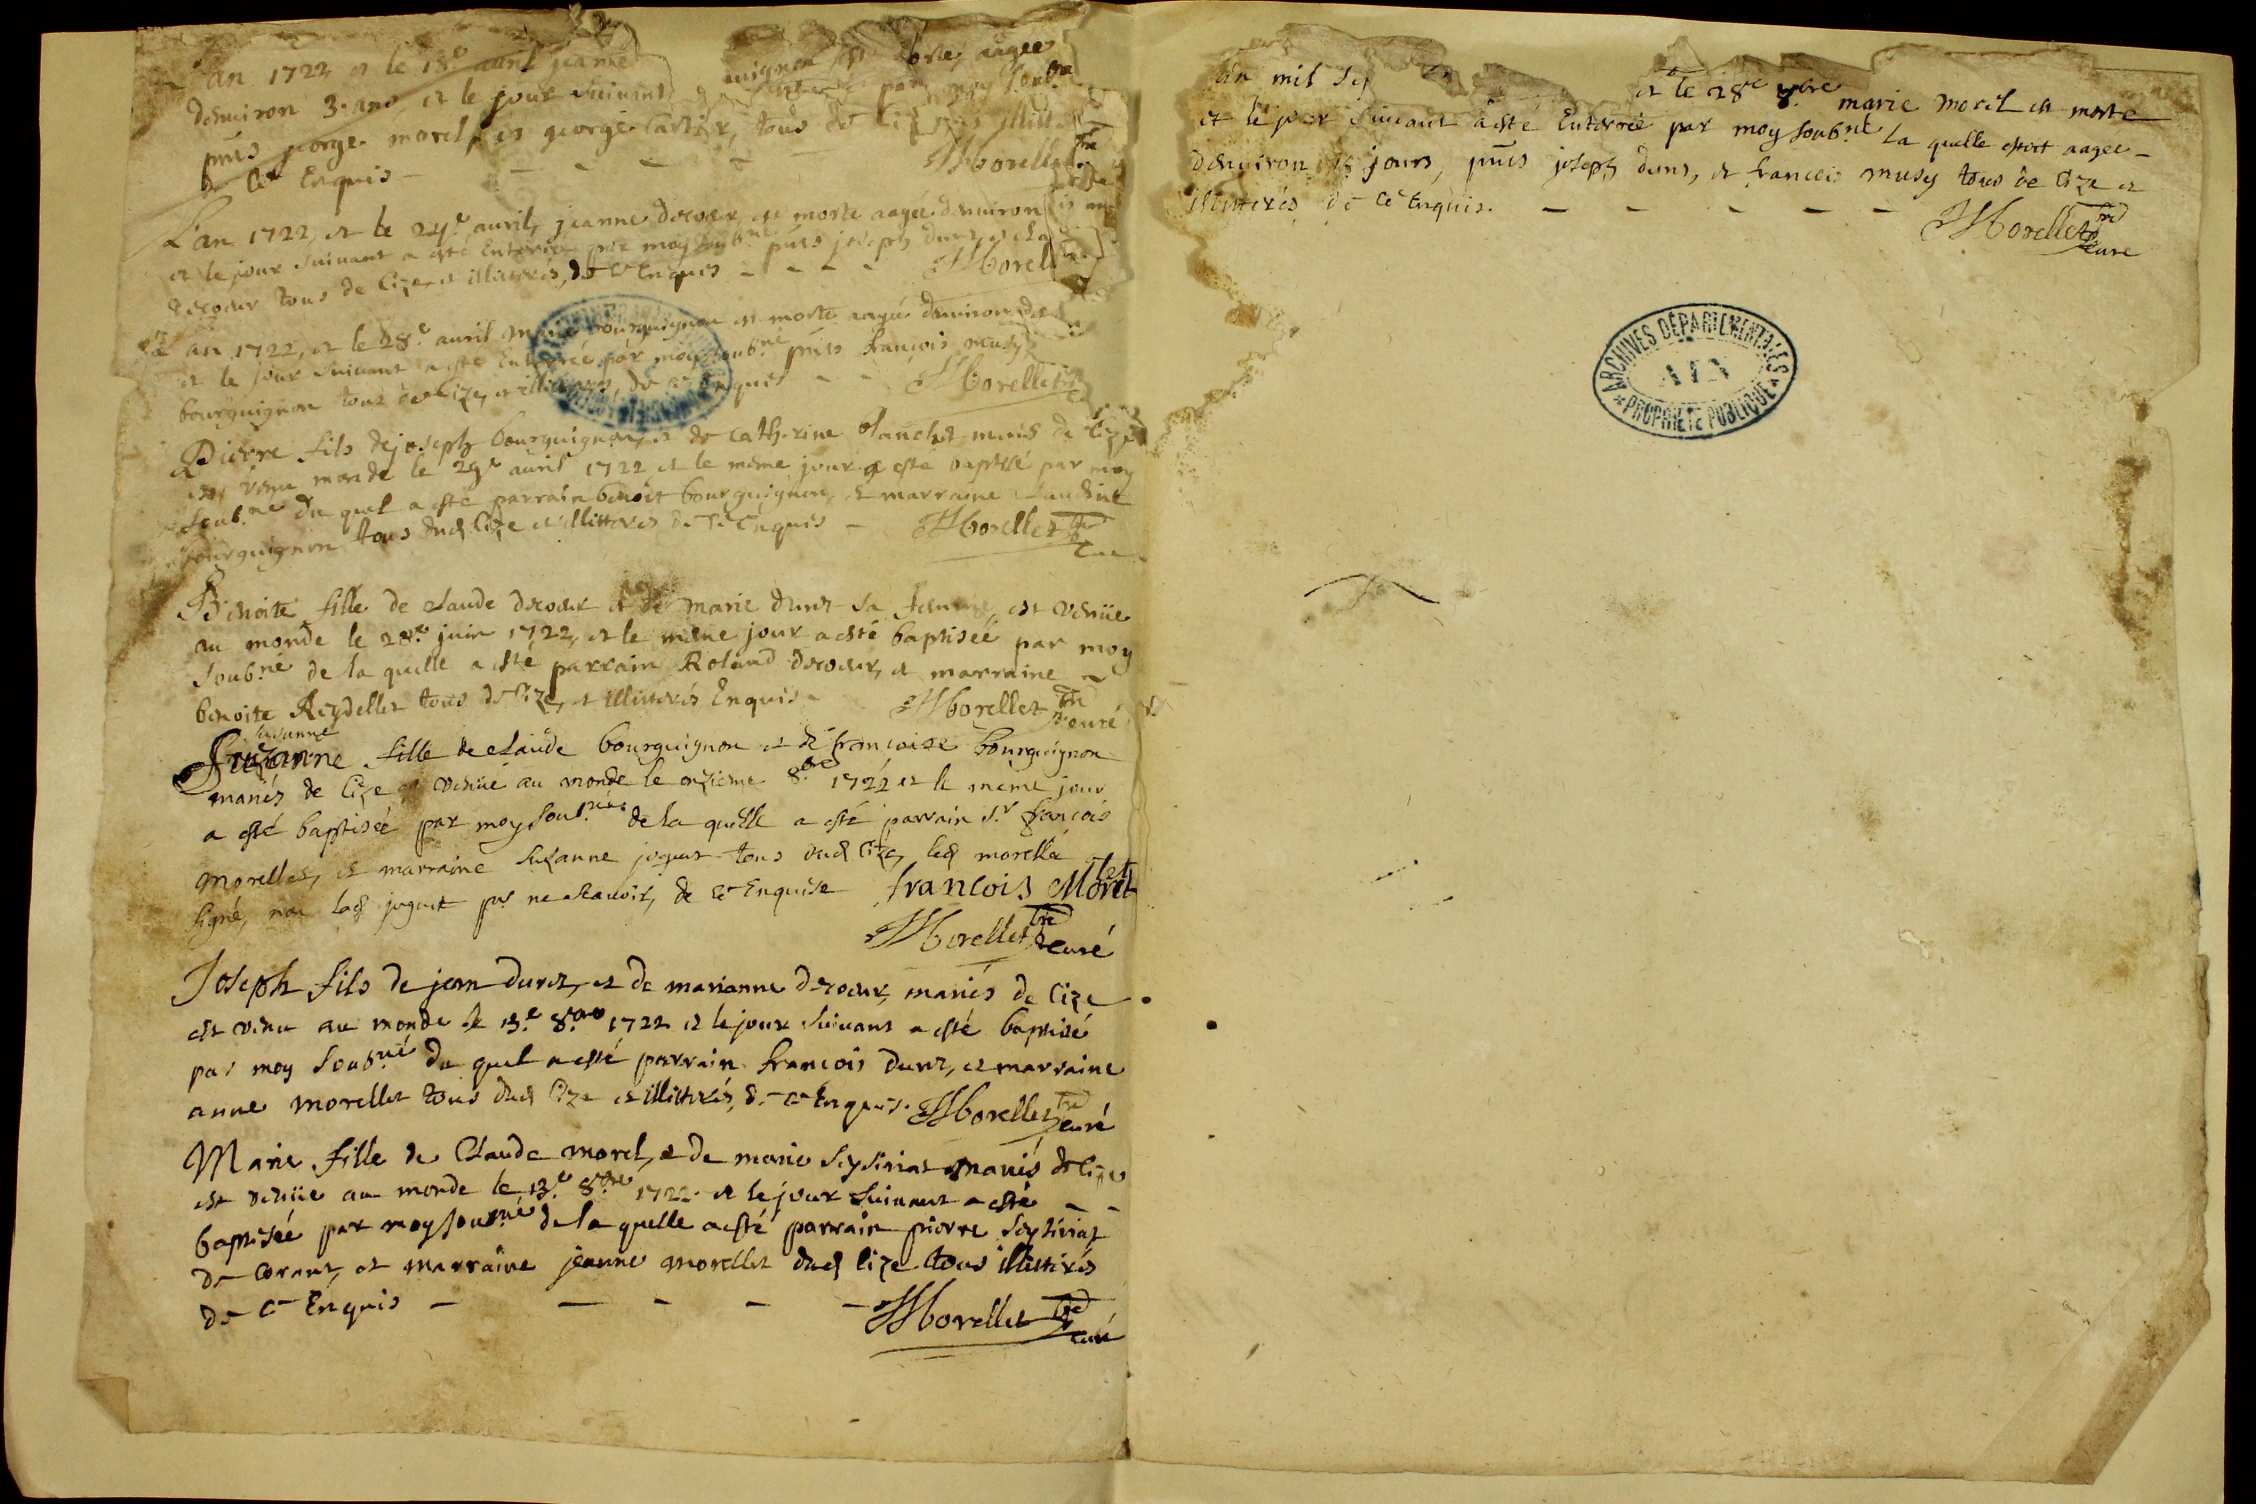 an 1722 et le 18e avril jeanne uignon est morte, aagee
denviron 3. ans et le jour suivant par moy soub
pnts george morel, et george tous de illitt
de ce Enquis - Morellet
L'an 1722, et le 24e avril, jeanne decoeur est morte aagée denviron
et le jour suivant a esté Enterrée par moy soubné pnts joseph duret et cla
decoeur tous de Cize, et illitterés, de ce Enquis - - - - Morell
an 1722, et le 28e avril Marie bourguignon est morte aagée denviron
et le jour suivant a esté Enterrée par moy soubné pnts françois musy
bourguignon tous de Cize, et illitterés, de ce Enquis - - Morellet
Pierre fils de joseph bourguignon, et de catherine blanchet mariés de Cize
est venu monde le 29e avril 1722 et le même jour a esté baptisé par moy
soubné du quel a esté parrain benoit bourguignon, et marraine claudine
bourguignon tous dud Cize et illitterés de ce Enquis - Morellet
Benoite fille de claude decoeur et de marie duret sa femme, est venüe
au monde le 28e juin 1722, et le même jour a esté baptisée par moy
soubné de la quelle a esté parrain Roland decoeur, et marraine
benoite Reydellet tous de Cize, et illitterés Enquis - Morellet pbre curé
Suzanne
Suzanne fille de claude bourguignon et de françoise bourguignon
mariés de Cize est venüe au monde le onzieme 8bre 1722 et le même jour
a esté baptisée par moy soubné de la quelle a esté parrain sr françois
Morellet, et marraine Suzanne joguet tous dud Cize, led morellet a
signé, non lad joguet pr ne scavoir, de ce Enquise francois Morellet
Morellet pbre curé
Joseph fils de jean duret, et de marianne decoeur, mariés de Cize
est venu au monde le 13e 8bre 1722 et le jour suivant a esté baptisé
par moy soubné du quel a esté parrain francois duret, et marraine
anne morellet tous dud Cize et illitterés, de ce Enquis. Morellet pbre curé
Marie fille de Claude morel, et de marie seysiriat mariés de Cize
est venüe au monde le 13e 8bre 1722 et le jour suivant a esté - -
baptisée par moy soubné de la quelle a esté parrain pierre seysiriat
de Corant, et marraine jeanne morellet dud Cize tous illitterés
de ce Enquis - - - - - Morellet pbre curé
an mil sep et le 28e 8bre marie morel est morte
et le jour suivant a esté Enterrée par moy soubné la quelle estoit aagee -
denviron 15 jours, pnts joseph duret, et francois musy tous de Cize et
illitterés de ce Enquis. - - - - - Morellet pbre curé
ARCHIVES DÉPARTEMENTALES
AIN
PROPRIÉTÉ PUBLIQUE